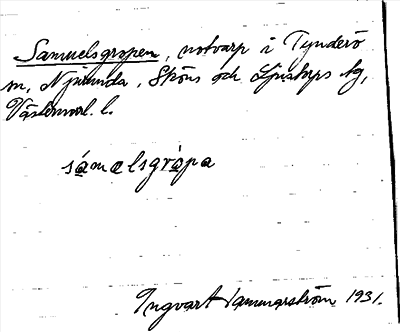 Samuelsgropen, notvarp i Tynderö
sn, Njurunda, Sköns och Ljustorps tg,
Västernorl. l.
sámelsgròpa
Ingvart Hammarström 1931.